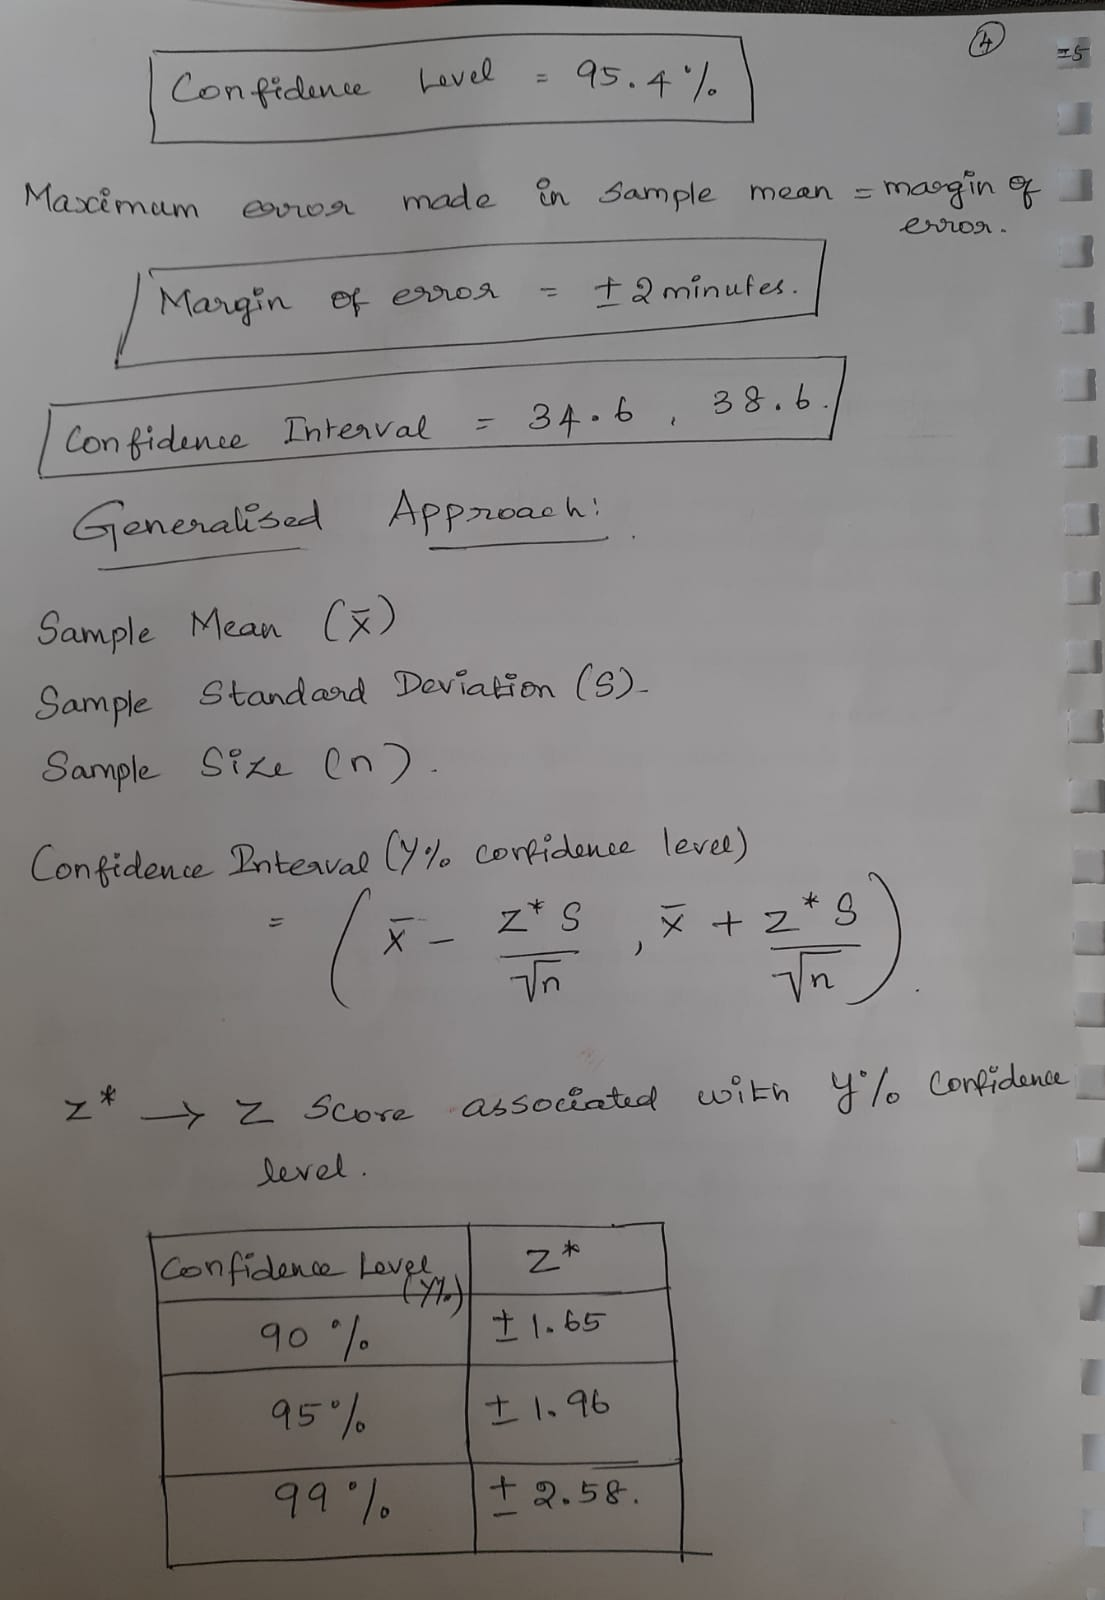 4
=5
Confidence Level = 95.4%
Maximum error made in Sample mean = margin of
error.
Margin of error = ±2 minutes.
Confidence Interval = 34.6, 38.6.
Generalised Approach:
Sample Mean (x̄)
Sample Standard Deviation (S).
Sample Size (n).
Confidence Interval (Y% confidence level)
= (x̄ - Z*S/√n, x̄ + Z*S/√n).
Z* → Z Score associated with Y% Confidence
level.
Confidence Level (Y%) Z*
90% ±1.65
95% ±1.96
99% ±2.58.